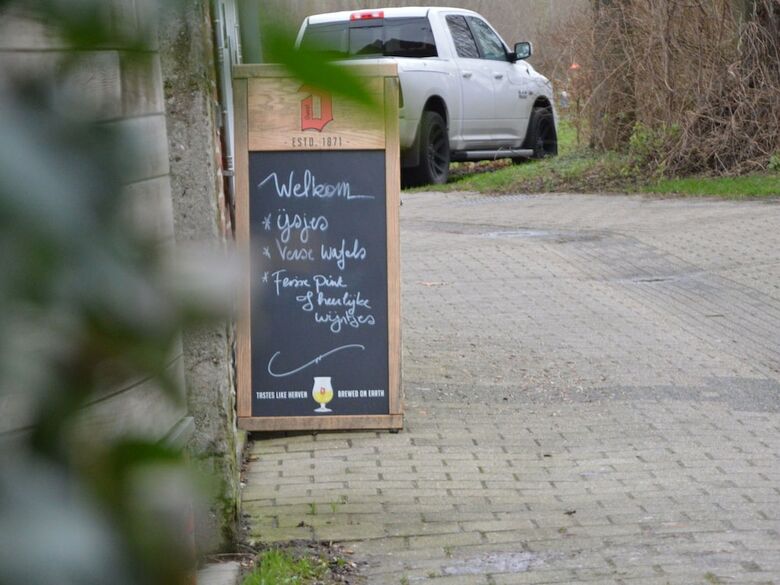 D
ESTD. 1871
Welkom
* ijsjes
* Verse wafels
* Frisse pint
of heerlijke
wijntjes
TASTES LIKE HEAVEN BREWED ON EARTH